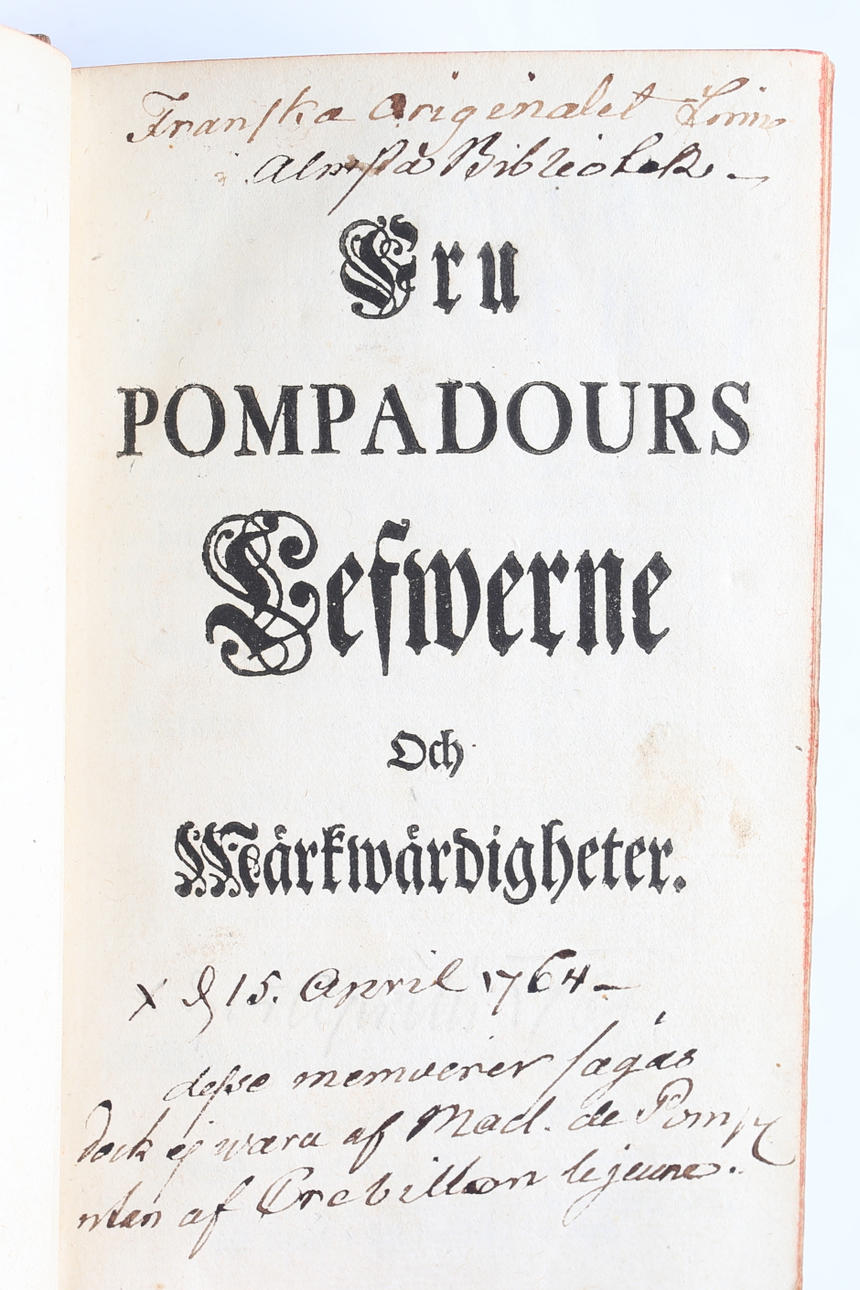 Franska Originalet finns
Almsta Bibliotek. —
Fru
POMPADOURS
Lefwerne
Och
Märkwärdigheter.
d 15. April 1764 —
desse memoerer sägas
dock ej wara af Mad. de Pomp
utan af Crebillon le jeune.